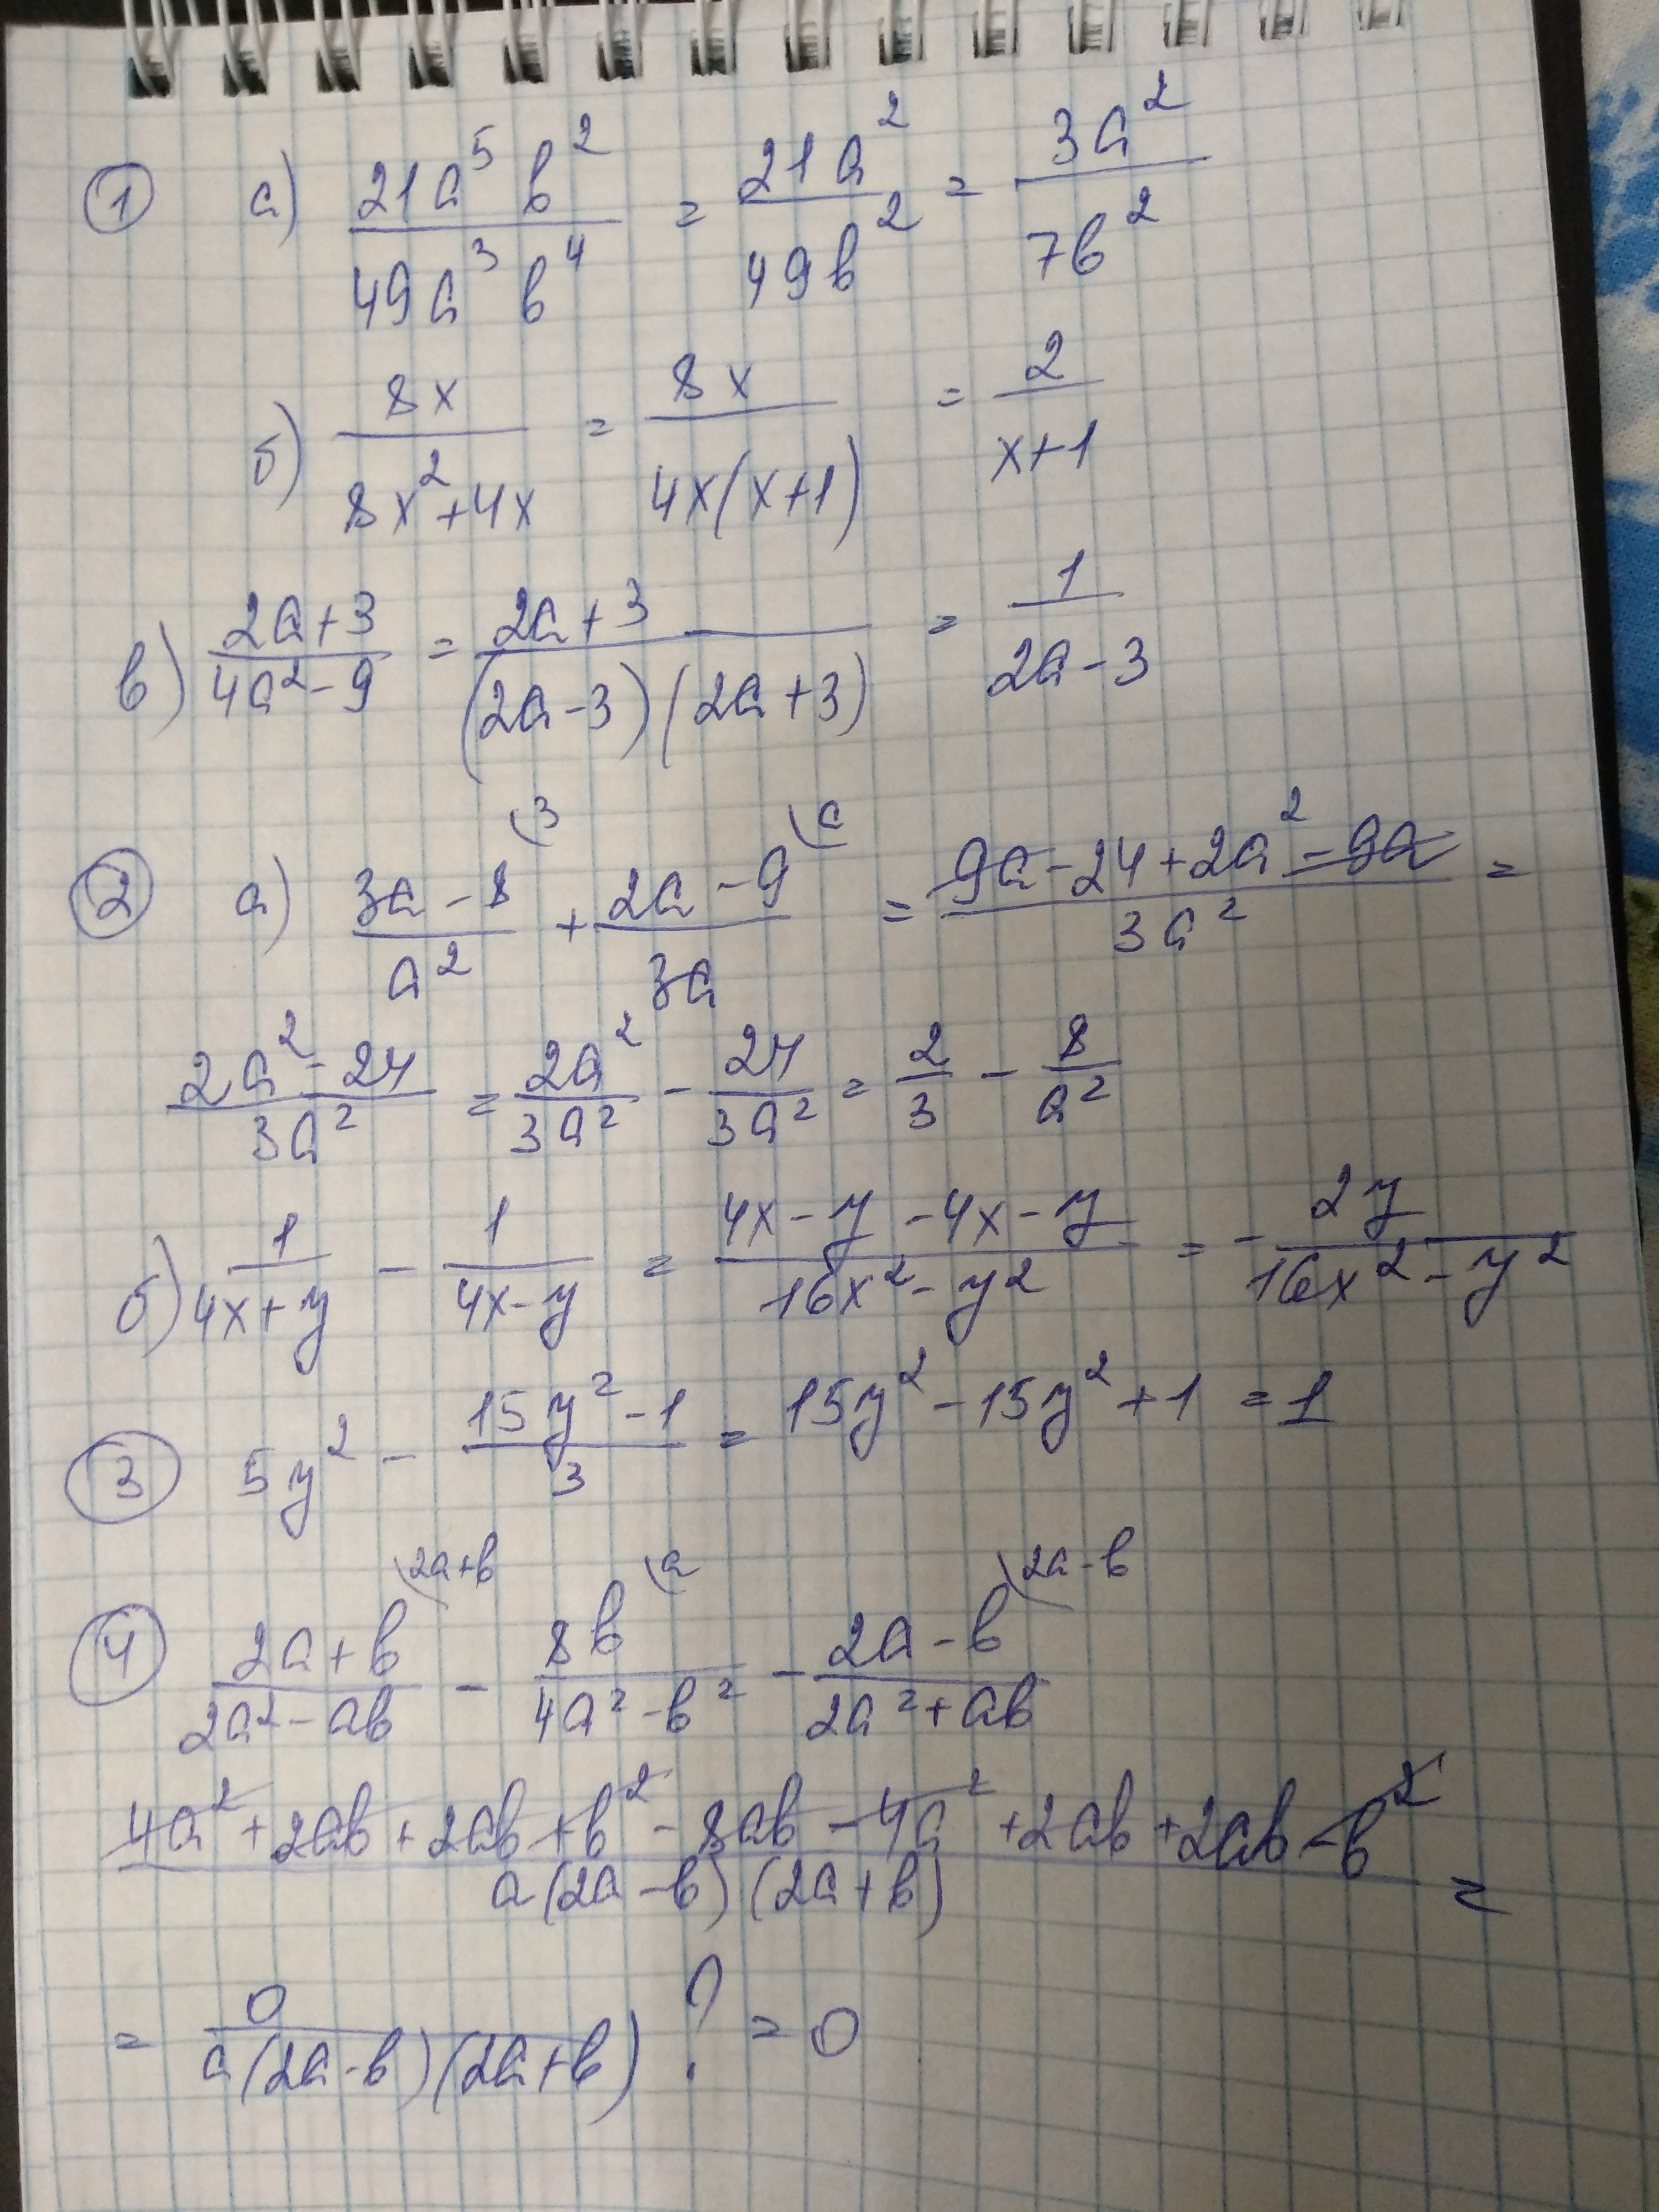 1 а) 21a⁵b²/49a³b⁴ = 21a²/49b² = 3a²/7b²
б) 8x/8x²+4x = 8x/4x(x+1) = 2/x+1
в) 2a+3/4a²-9 = 2a+3/(2a-3)(2a+3) = 1/2a-3
2 а) 3a-8/a² (3 + 2a-9/3a (a = 9a-24+2a²-9a/3a² =
2a²-24/3a² = 2a²/3a² - 24/3a² = 2/3 - 8/a²
б) 1/4x+y - 1/4x-y = 4x-y-4x-y/16x²-y² = - 2y/16x²-y²
3 5y² - 15y²-1/3 = 15y²-15y²+1 = 1
4 2a+b/2a²-ab (2a+b - 8b/4a²-b² (a - 2a-b/2a²+ab (2a-b
4a²+2ab+2ab+b²-8ab-4a²+2ab+2ab-b²/a(2a-b)(2a+b) =
= 0/a(2a-b)(2a+b) ? = 0